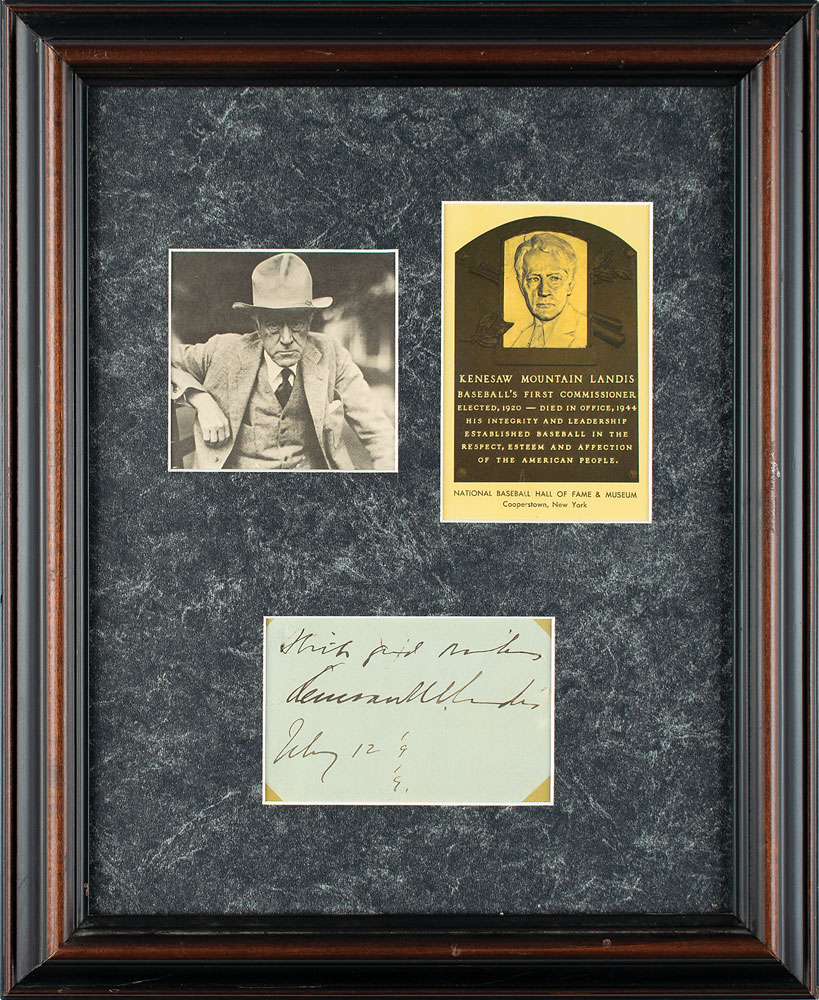 KENESAW MOUNTAIN LANDIS
BASEBALL'S FIRST COMMISSIONER
ELECTED, 1920 — DIED IN OFFICE, 1944
HIS INTEGRITY AND LEADERSHIP
ESTABLISHED BASEBALL IN THE
RESPECT, ESTEEM AND AFFECTION
OF THE AMERICAN PEOPLE.
NATIONAL BASEBALL HALL OF FAME & MUSEUM
Cooperstown, New York
With good wishes
Kenesaw M Landis
12 '9